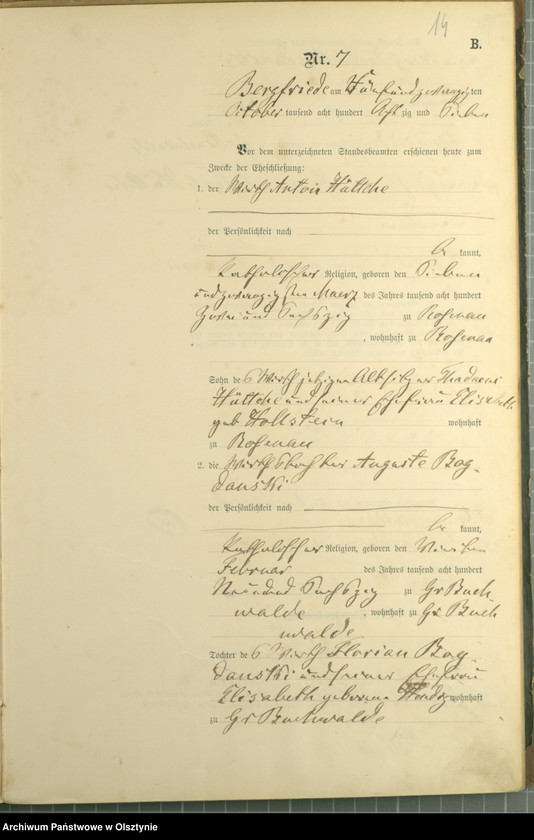 14
B.
Nr. 7
Bergfriede am Fünfundzwanzigsten
October tausend acht hundert Acht zig und Sieben
Vor dem unterzeichneten Standesbeamten erschienen heute zum
Zwecke der Eheschließung:
1. der Wirth Anton Hüttche
der Persönlichkeit nach
be kannt,
Katholischer Religion, geboren den Sieben
und zwanzigsten Maerz des Jahres tausend acht hundert
Zwei und Sechszig zu
, wohnhaft zu
Sohn des Wirth jetzigen Altsitzer Thadaeus
Hüttche und seiner Ehefrau Elisabeth
geb Hollstein wohnhaft
zu
2. die Wirthstochter Auguste Bog-
danski
der Persönlichkeit nach
be kannt,
Katholischer Religion, geboren den
Februar des Jahres tausend acht hundert
Neun und Sechszig zu Gr Buch
walde, wohnhaft zu Gr Buch
walde
Tochter des Wirth Florian Bog-
danski und seiner Ehefrau
Elisabeth geborene wohnhaft
zu Gr Buchwalde
Archiwum Państwowe w Olsztynie